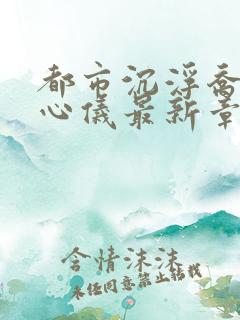 都市沉浮乔
心仪最新章
含情沫沫
未经同意禁止转载